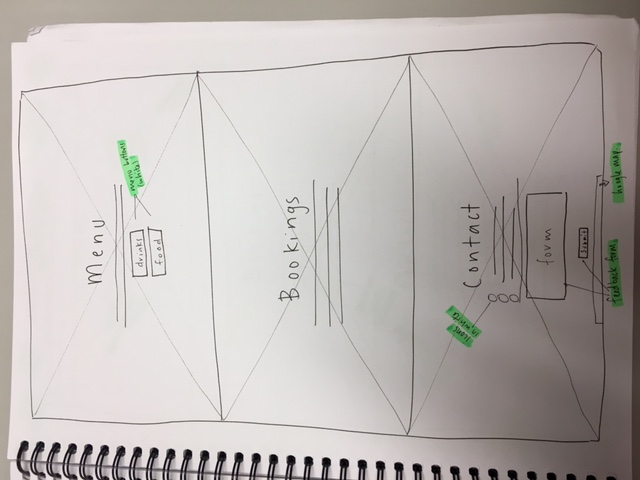 Menu
drinks
food
menu buttons
(white)
Bookings
icons
in white
Contact
form
submit
feedback form
google map